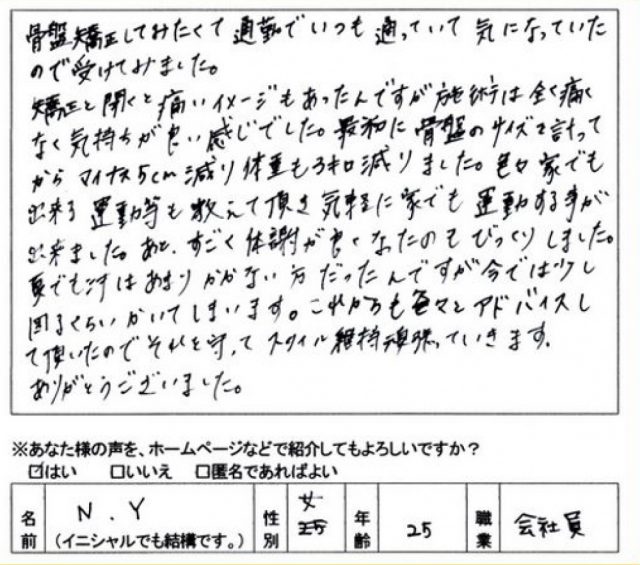 骨盤矯正してみたくて通勤でいつも通っていて気になっていた
ので受けてみました。
矯正と聞くと痛いイメージもあったんですが施術は全く痛く
なく気持ちが良い感じでした。最初に骨盤のサイズを計って
からマイナス5cm減り体重も3キロ減りました。色々家でも
出来る運動等も教えて頂き気軽に家でも運動する事が
出来ました。あと、すごく体謝が良くなったのもびっくりしました。
夏でも汗はあまりかかない方だったんですが今では少し
困るくらいかいてしまいます。これからも色々とアドバイスし
て頂いたのでそれを守ってスタイル維持頑張っていきます。
ありがとうございました。
※あなた様の声を、ホームページなどで紹介してもよろしいですか？
☑はい □いいえ □匿名であればよい
名前 N.Y (イニシャルでも結構です。) 性別 女 年齢 25 職業 会社員